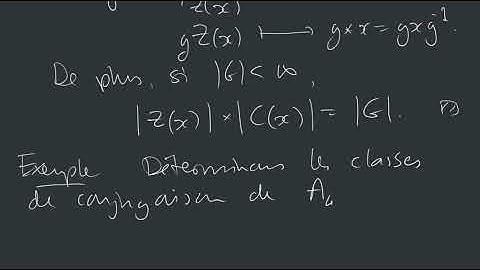 Z(x)
gZ(x) ⟼ g*x = gxg⁻¹.
De plus, si |G| < ∞,
|Z(x)| × |C(x)| = |G|.
Exemple Déterminons les classes
de conjugaison de A₄